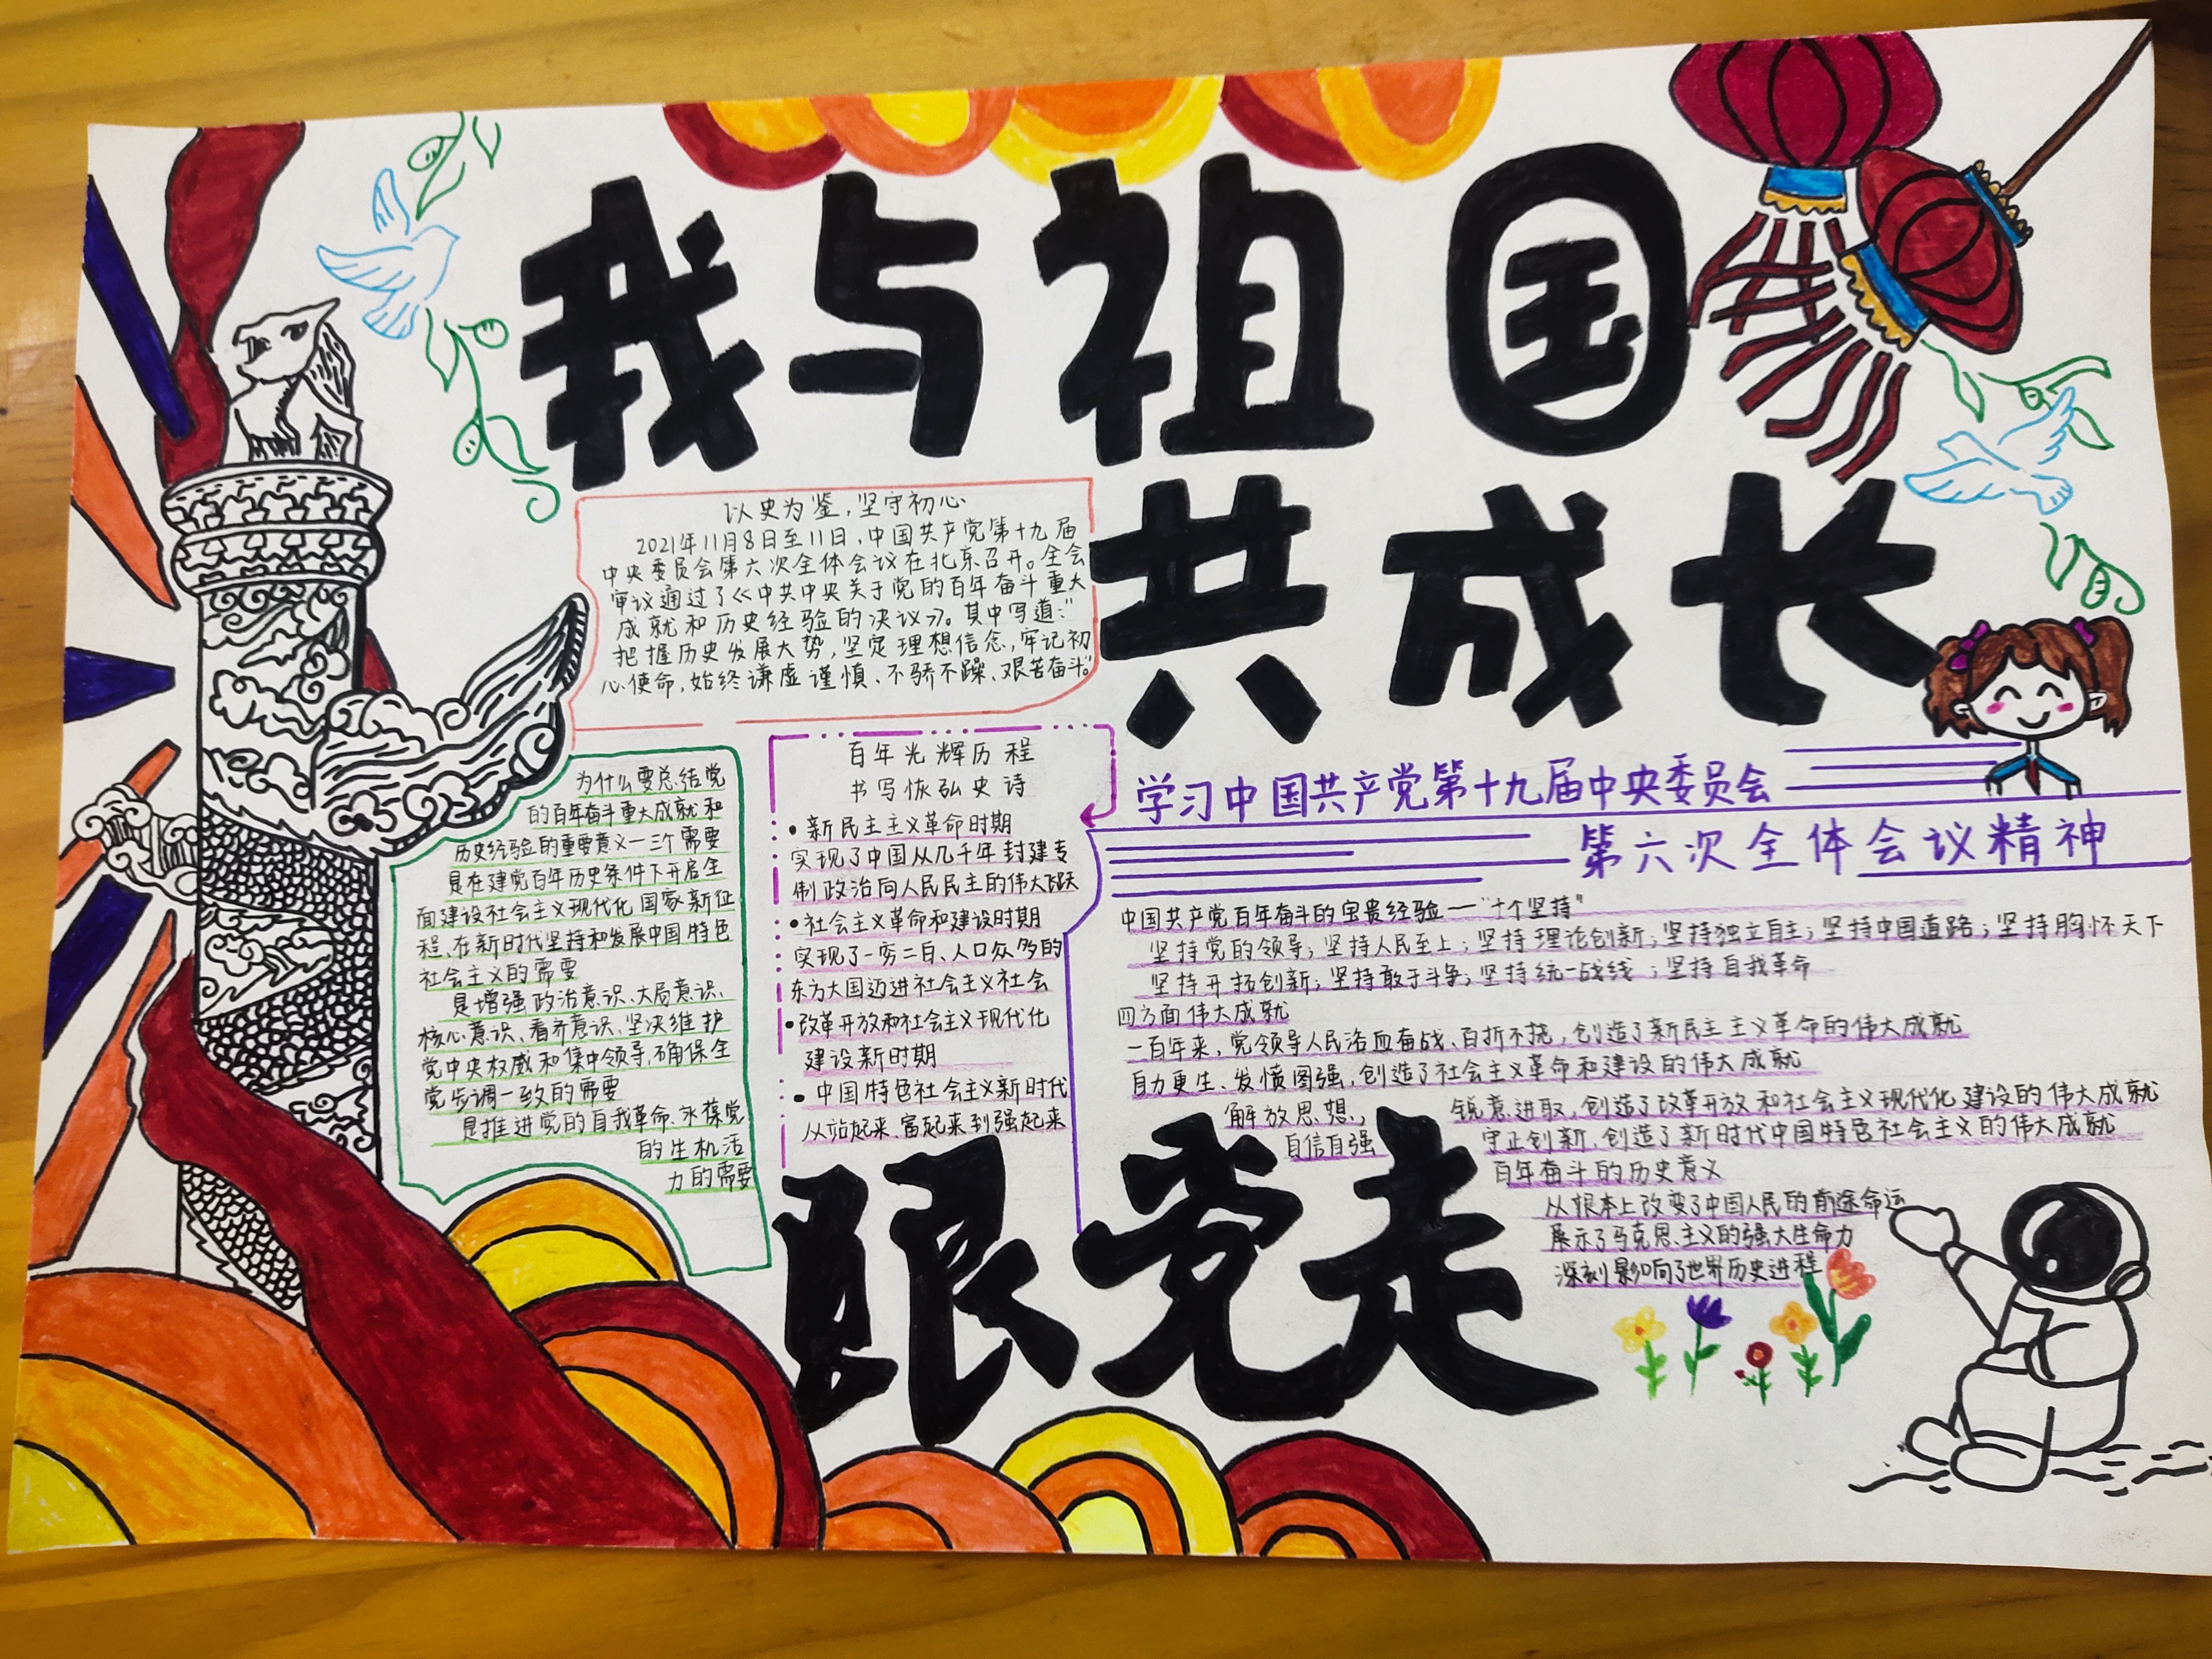 我与祖国
共成长
以史为鉴，坚守初心
2021年11月8日至11日，中国共产党第十九届
中央委员会第六次全体会议在北京召开。全会
审议通过了《中共中央关于党的百年奋斗重大
成就和历史经验的决议》。其中写道:“
把握历史发展大势，坚定理想信念，牢记初
心使命，始终谦虚谨慎、不骄不躁、艰苦奋斗。”
为什么要总结党
的百年奋斗重大成就和
历史经验的重要意义一三个需要
是在建党百年历史条件下开启全
面建设社会主义现代化国家新征
程、在新时代坚持和发展中国特色
社会主义的需要
是增强政治意识、大局意识、
核心意识、看齐意识、坚决维护
党中央权威和集中领导，确保全
党步调一致的需要
是推进党的自我革命、永葆党
的生机活
力的需要
百年光辉历程
书写恢弘史诗
•新民主主义革命时期
实现了中国从几千年封建专
制政治向人民民主的伟大跃天
•社会主义革命和建设时期
实现了一穷二白、人口众多的
东方大国迈进社会主义社会
•改革开放和社会主义现代化
建设新时期
•中国特色社会主义新时代
从站起来、富起来到强起来
学习中国共产党第十九届中央委员会
第六次全体会议精神
中国共产党百年奋斗的宝贵经验——“十个坚持”
坚持党的领导；坚持人民至上；坚持理论创新；坚持独立自主；坚持中国道路；坚持胸怀天下
坚持开拓创新；坚持敢于斗争；坚持统一战线；坚持自我革命
四方面伟大成就
一百年来，党领导人民浴血奋战、百折不挠，创造了新民主主义革命的伟大成就
自力更生、发愤图强，创造了社会主义革命和建设的伟大成就
解放思想、锐意进取，创造了改革开放和社会主义现代化建设的伟大成就
自信自强 守正创新，创造了新时代中国特色社会主义的伟大成就
百年奋斗的历史意义
从根本上改变了中国人民的前途命运
展示了马克思主义的强大生命力
深刻影响了世界历史进程
跟党走